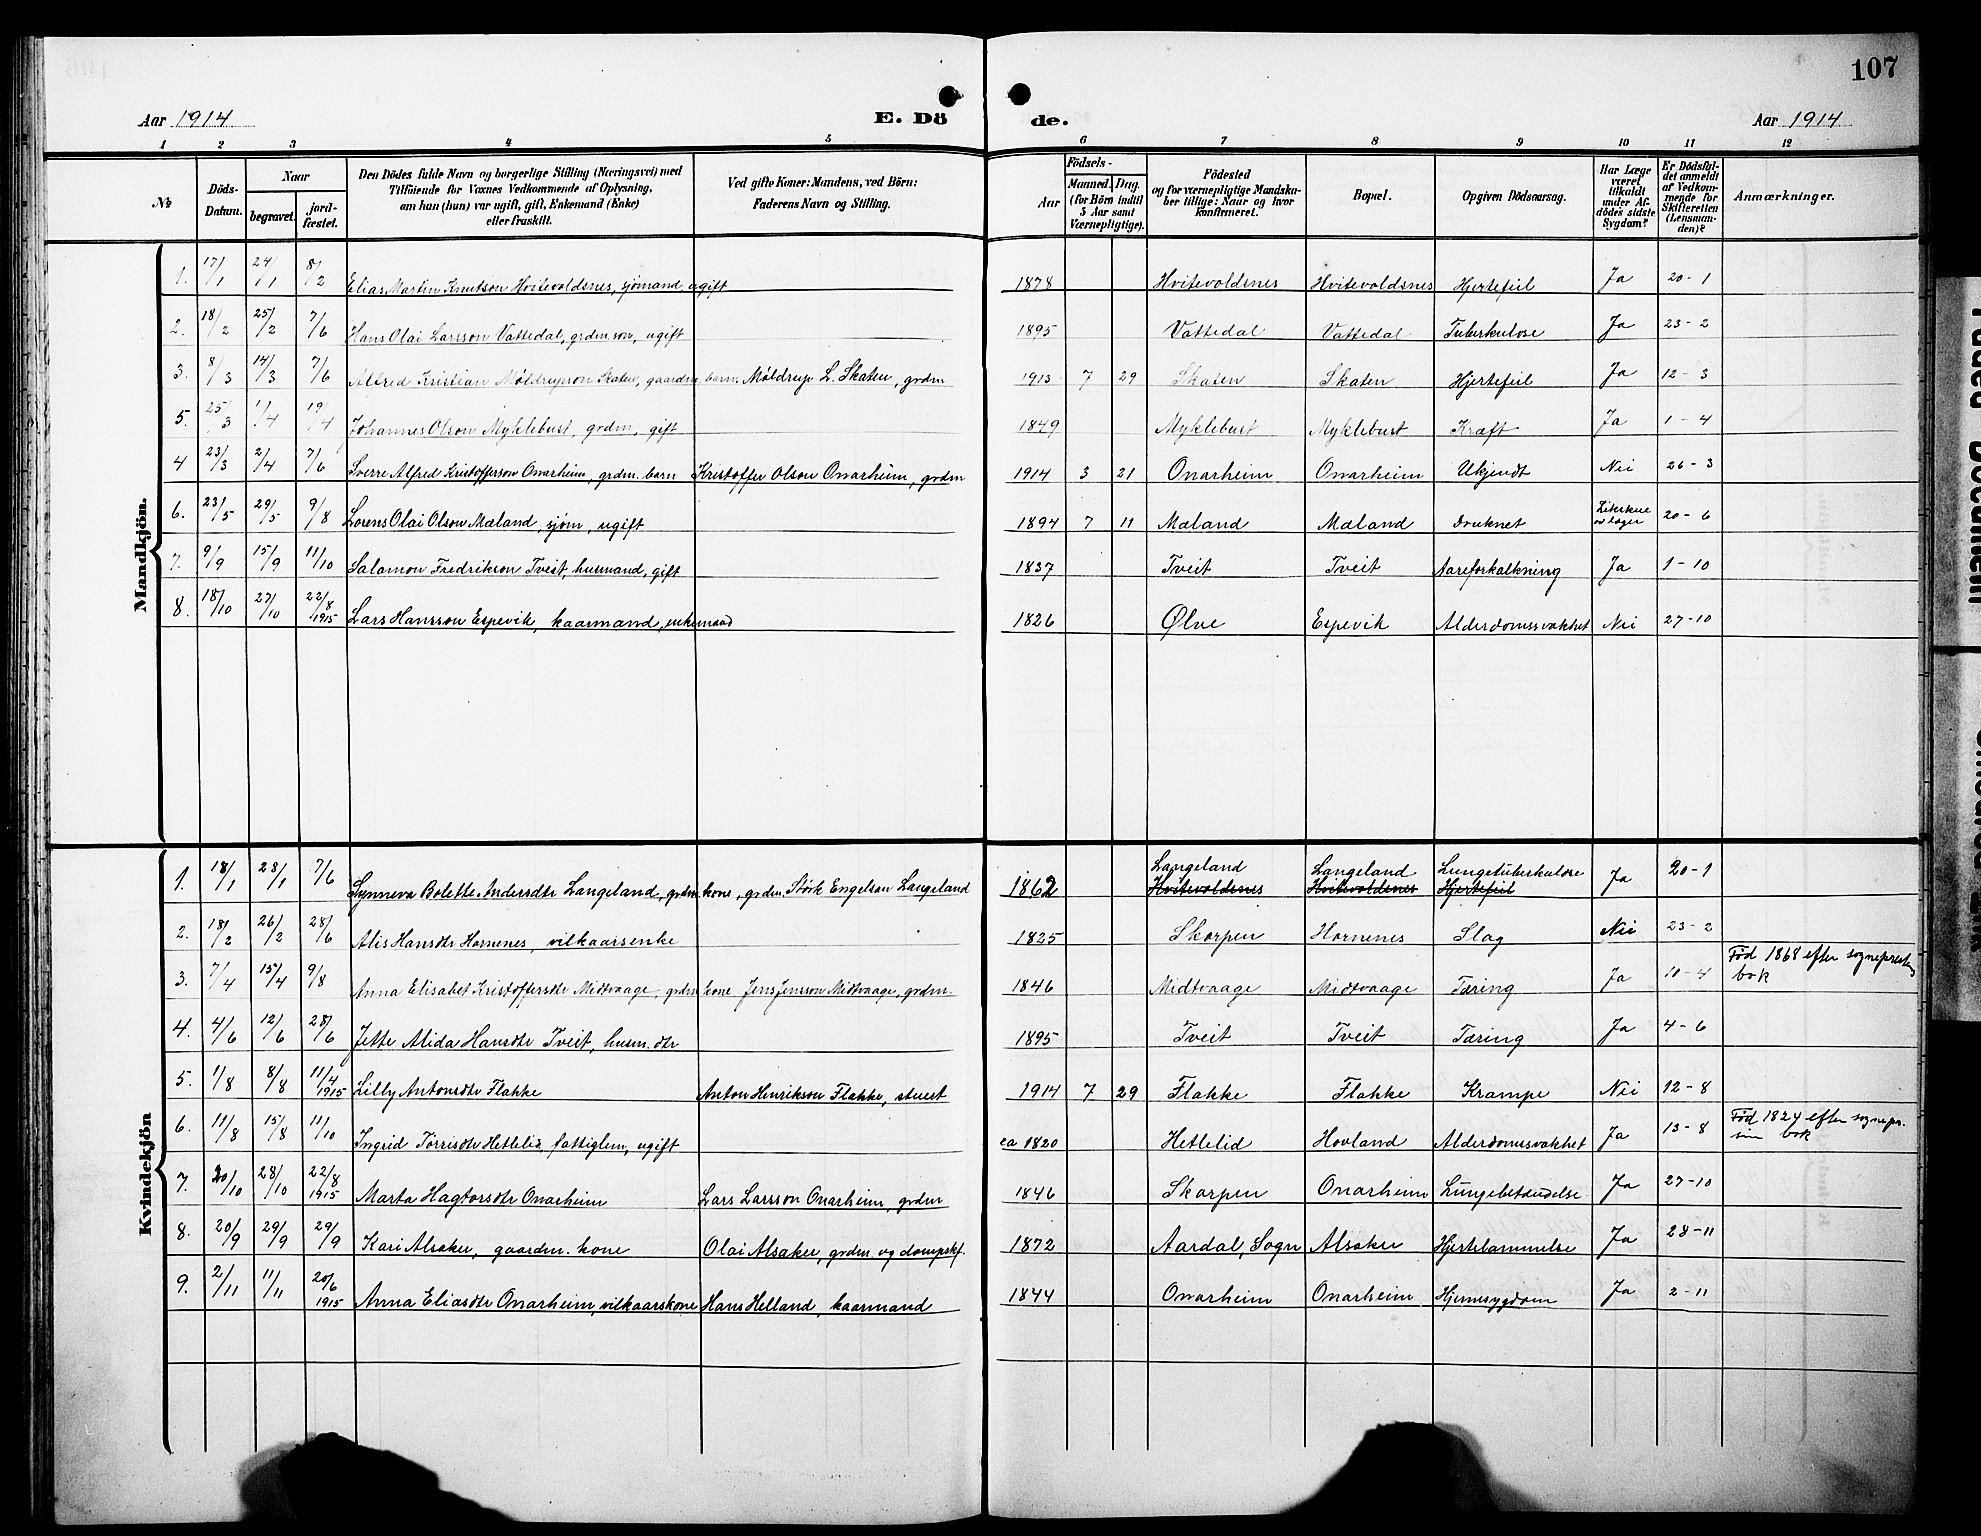 107
Aar 1914 E. Dö de. Aar 1914
1 2 3 4 5 6 7 8 9 10 11 12
№
Döds-Datum.
Naar
begravet.
jord-fæstet.
Den Dödes fulde Navn og borgerlige Stilling (Næringsvei) med
Tilföiende for Voxnes Vedkommende af Oplysning,
om han (hun) var ugift, gift, Enkemand (Enke)
eller fraskilt.
Ved gifte Koner: Mandens, ved Börn:
Faderens Navn og Stilling.
Födsels-
Aar
Maaned. Dag.
(for Börn indtil
5 Aar samt
Værnepligtige).
Födested
og for værnepligtige Mandska-
ber tillige: Naar og hvor
konfirmeret.
Bopæl.
Opgiven Dödsaarsag.
Har Læge
været
tilkaldt
under Af-
dödes sidste
Sygdom?
Er Dödsfal-
det anmeldt
af Vedkom-
mende for
Skifteretten
(Lensman-
den)?
Anmærkninger.
Mandkjön.
1. 17/1 24/1 8/2 Elias Martin Knutson Hvitevoldsnes, sjömand ugift 1878 Hvitevoldsnes Hvitevoldsnes Hjertefeil Ja 20-1
2. 18/2 25/2 7/6 Hans Olai Larsson Vattedal, grdm. søn, ugift 1895 Vattedal Vattedal Tuberkulose Ja 23-2
3. 8/3 14/3 7/6 Alfred Kristian Møldrupson Skaten, gaardm. barn. Møldrup L. Skaten, grdm 1913 7 29 Skaten Skaten Hjertefeil Ja 12-3
5. 25/3 1/4 19/4 Johannes Olson Myklebust, grdm, gift 1849 Myklebust Myklebust Kræft Ja 1-4
4 23/3 2/4 7/6 Sverre Alfred Kristofferson Onarheim, grdm. barn Kristoffer Olson Onarheim, grdm 1914 3 21 Onarheim Onarheim Ukjendt Nei 26-3
6. 23/5 29/5 9/8 Lorens Olai Olson Mæland, sjøm, ugift 1894 7 11 Mæland Mæland Druknet 20-6
7. 9/9 15/9 11/10 Salamon Fredrikson Tveit, husmand, gift 1837 Tveit Tveit Aareforkalkning Ja 1-10
8. 18/10 27/10 22/8 1915 Lars Hansson Espevik, kaarmand, enkemand 1826 Ølve Espevik Alderdomssvakhet Nei 27-10
Kvindekjön
1. 18/1 28/1 7/6 Synneva Bolette Andersdtr Langeland, grdm. kone, grdm. Størk Engelson Langeland 1862 Langeland Langeland Lungetuberkulose Ja 20-1
Hvitevoldsnes Hvitevoldsnes Hjertefeil
2. 18/2 26/2 28/6 Alis Hansdtr Hornenes, vilkaarsenke 1825 Skorpen Hornenes Slag Nei 23-2
3. 7/4 15/4 9/8 Anna Elisabet Kristoffersdtr Midtvaage, grdm kone Jens Jensson Midtvaage, grdm. 1846 Midtvaage Midtvaage Tæring Ja 10-4 Fød 1868 efter sogneprestens
bok
4. 4/6 12/6 28/6 Jette Alida Hansdtr Tveit, husm. dtr 1895 Tveit Tveit Tæring Ja 4-6
5. 1/8 8/8 11/4 1915 Lilly Antonsdtr Flakke Anton Henrikson Flakke, stuert 1914 7 29 Flakke Flakke Krampe Nei 12-8
6. 11/8 15/8 11/10 Ingrid Tørrisdtr Hetlelid, fattiglem, ugift ca 1820 Hetlelid Hovland Alderdomssvakhet Ja 13-8 Fød 1824 efter sognepr.
sin bok
7. 20/10 28/10 22/8 1915 Marta Hagtorsdtr Onarheim Lars Larsson Onarheim, grdm 1846 Skorpen Onarheim Lungebetændelse Ja 27-10
8. 20/9 29/9 29/9 Kari Alsaker, gaardm. kone Olai Alsaker, grdm. og dampskf. 1872 Aardal, Sogn Alsaker Hjertelammelse Ja 28-11
9. 2/11 11/11 20/6 1915 Anna Eliasdtr Onarheim, vilkaarskone Hans Helland, kaarmand 1844 Onarheim Onarheim Hjernesygdom Ja 2-11